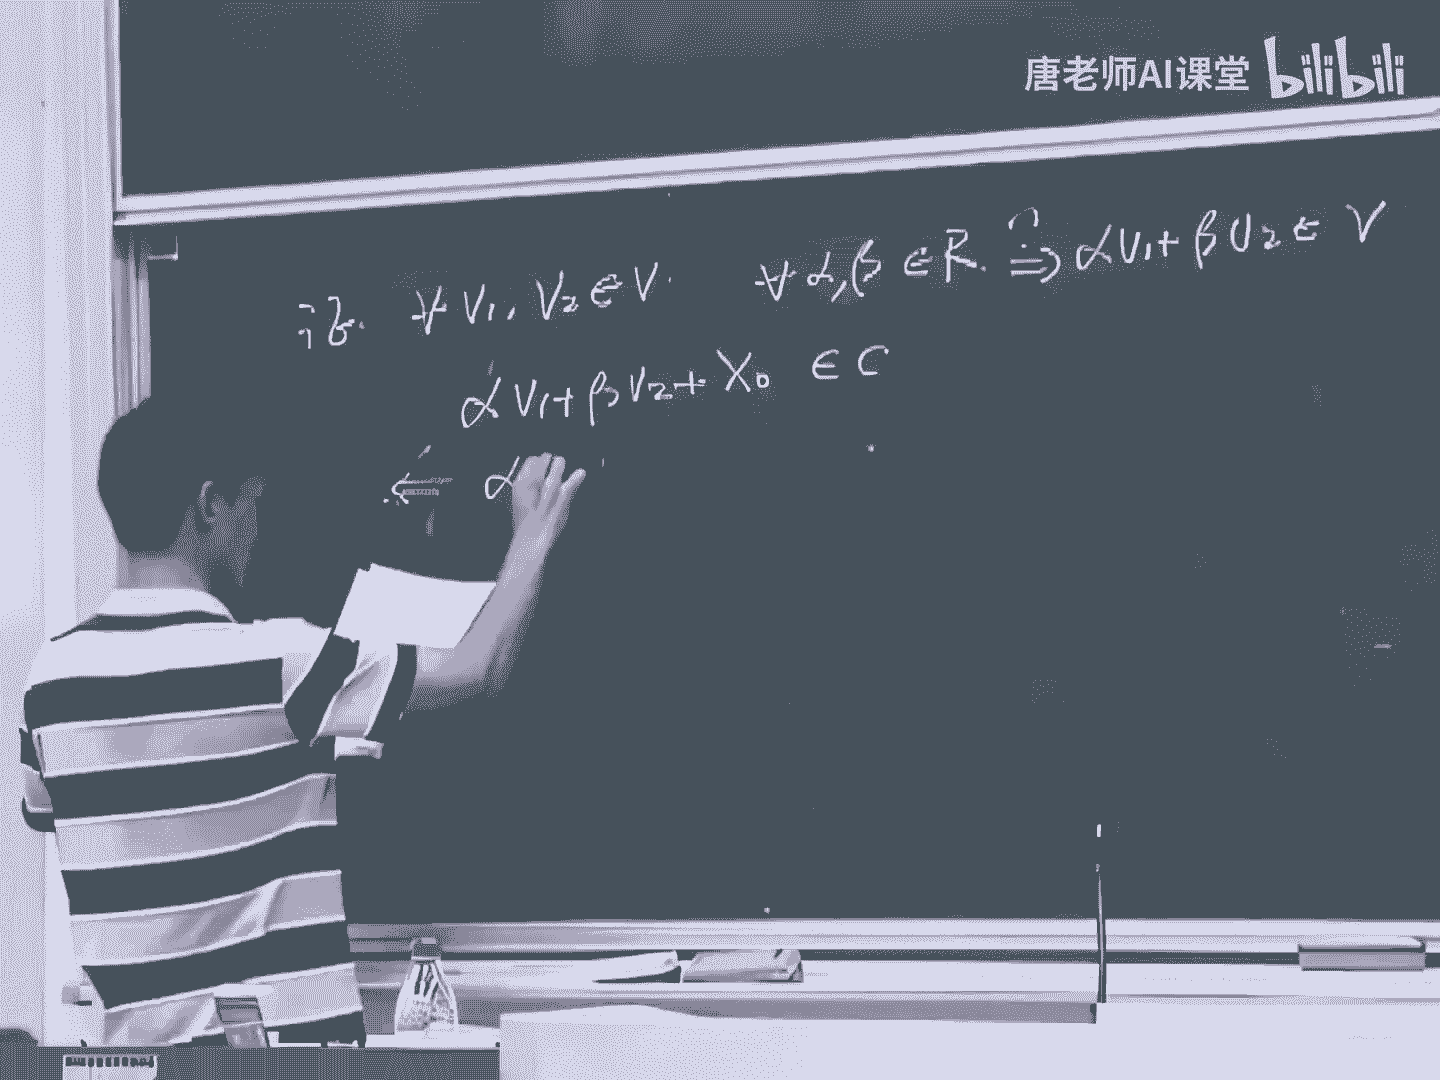 唐老师AI课堂 bilibili
证. ∀ V₁, V₂ ∈ V. ∀ α, β ∈ R. ?⇒ αV₁ + βV₂ ∈ V
αV₁ + βV₂ + X₀ ∈ C
⇐ α